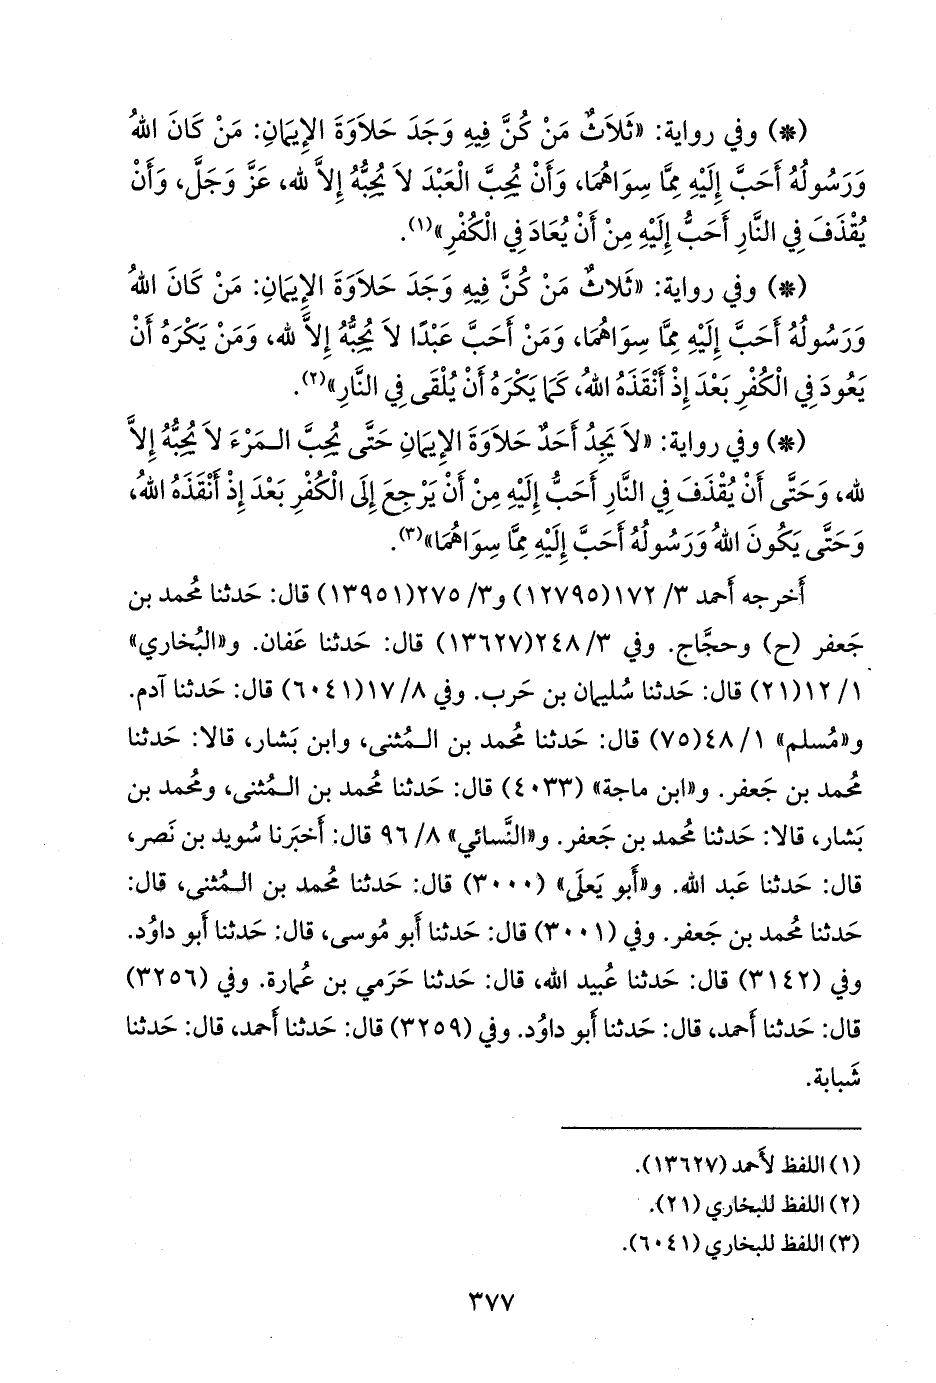 (*) وفي رواية: «ثَلاَثٌ مَنْ كُنَّ فِيهِ وَجَدَ حَلاَوَةَ الإِيمَانِ: مَنْ كَانَ اللهُ
وَرَسُولُهُ أَحَبَّ إِلَيْهِ مِمَّا سِوَاهُمَا، وَأَنْ يُحِبَّ الْعَبْدَ لاَ يُحِبُّهُ إِلاَّ لله، عَزَّ وَجَلَّ، وَأَنْ
يُقْذَفَ فِي النَّارِ أَحَبُّ إِلَيْهِ مِنْ أَنْ يُعَادَ فِي الْكُفْرِ»(١).
(*) وفي رواية: «ثَلاثٌ مَنْ كُنَّ فِيهِ وَجَدَ حَلاَوَةَ الإِيمَانِ: مَنْ كَانَ اللهُ
وَرَسُولُهُ أَحَبَّ إِلَيْهِ مِمَّا سِوَاهُمَا، وَمَنْ أَحَبَّ عَبْدًا لاَ يُحِبُّهُ إِلاَّ لله، وَمَنْ يَكْرَهُ أَنْ
يَعُودَ فِي الْكُفْرِ بَعْدَ إِذْ أَنْقَذَهُ اللهُ، كَمَا يَكْرَهُ أَنْ يُلْقَى فِي النَّارِ»(٢).
(*) وفي رواية: «لاَ يَجِدُ أَحَدٌ حَلاَوَةَ الإِيمَانِ حَتَّى يُحِبَّ الـمَرْءَ لاَ يُحِبُّهُ إِلاَّ
لله، وَحَتَّى أَنْ يُقْذَفَ فِي النَّارِ أَحَبُّ إِلَيْهِ مِنْ أَنْ يَرْجِعَ إِلَى الْكُفْرِ بَعْدَ إِذْ أَنْقَذَهُ اللهُ،
وَحَتَّى يَكُونَ اللهُ وَرَسُولُهُ أَحَبَّ إِلَيْهِ مِمَّا سِوَاهُمَا»(٣).
أَخرجه أَحمد ٣/ ١٧٢(١٢٧٩٥) و٣/ ٢٧٥(١٣٩٥١) قال: حَدثنا مُحمد بن
جَعفر (ح) وحجَّاج. وفي ٣/ ٢٤٨(١٣٦٢٧) قال: حَدثنا عَفان. و«البُخاري»
١/ ١٢(٢١) قال: حَدثنا سُليمان بن حَرب. وفي ٨/ ١٧(٦٠٤١) قال: حَدثنا آدم.
و«مُسلم» ١/ ٤٨(٧٥) قال: حَدثنا مُحمد بن الـمُثنى، وابن بَشار، قالا: حَدثنا
مُحمد بن جَعفر. و«ابن ماجة» (٤٠٣٣) قال: حَدثنا مُحمد بن الـمُثنى، ومُحمد بن
بَشار، قالا: حَدثنا مُحمد بن جَعفر. و«النَّسائي» ٨/ ٩٦ قال: أَخبَرنا سُويد بن نَصر،
قال: حَدثنا عَبد الله. و«أَبو يَعلَى» (٣٠٠٠) قال: حَدثنا مُحمد بن الـمُثنى، قال:
حَدثنا مُحمد بن جَعفر. وفي (٣٠٠١) قال: حَدثنا أَبو مُوسى، قال: حَدثنا أَبو داوُد.
وفي (٣١٤٢) قال: حَدثنا عُبيد الله، قال: حَدثنا حَرَمي بن عُمارة. وفي (٣٢٥٦)
قال: حَدثنا أَحمد، قال: حَدثنا أَبو داوُد. وفي (٣٢٥٩) قال: حَدثنا أَحمد، قال: حَدثنا
شَبابة.
(١) اللفظ لأَحمد (١٣٦٢٧).
(٢) اللفظ للبخاري (٢١).
(٣) اللفظ للبخاري (٦٠٤١).
٣٧٧